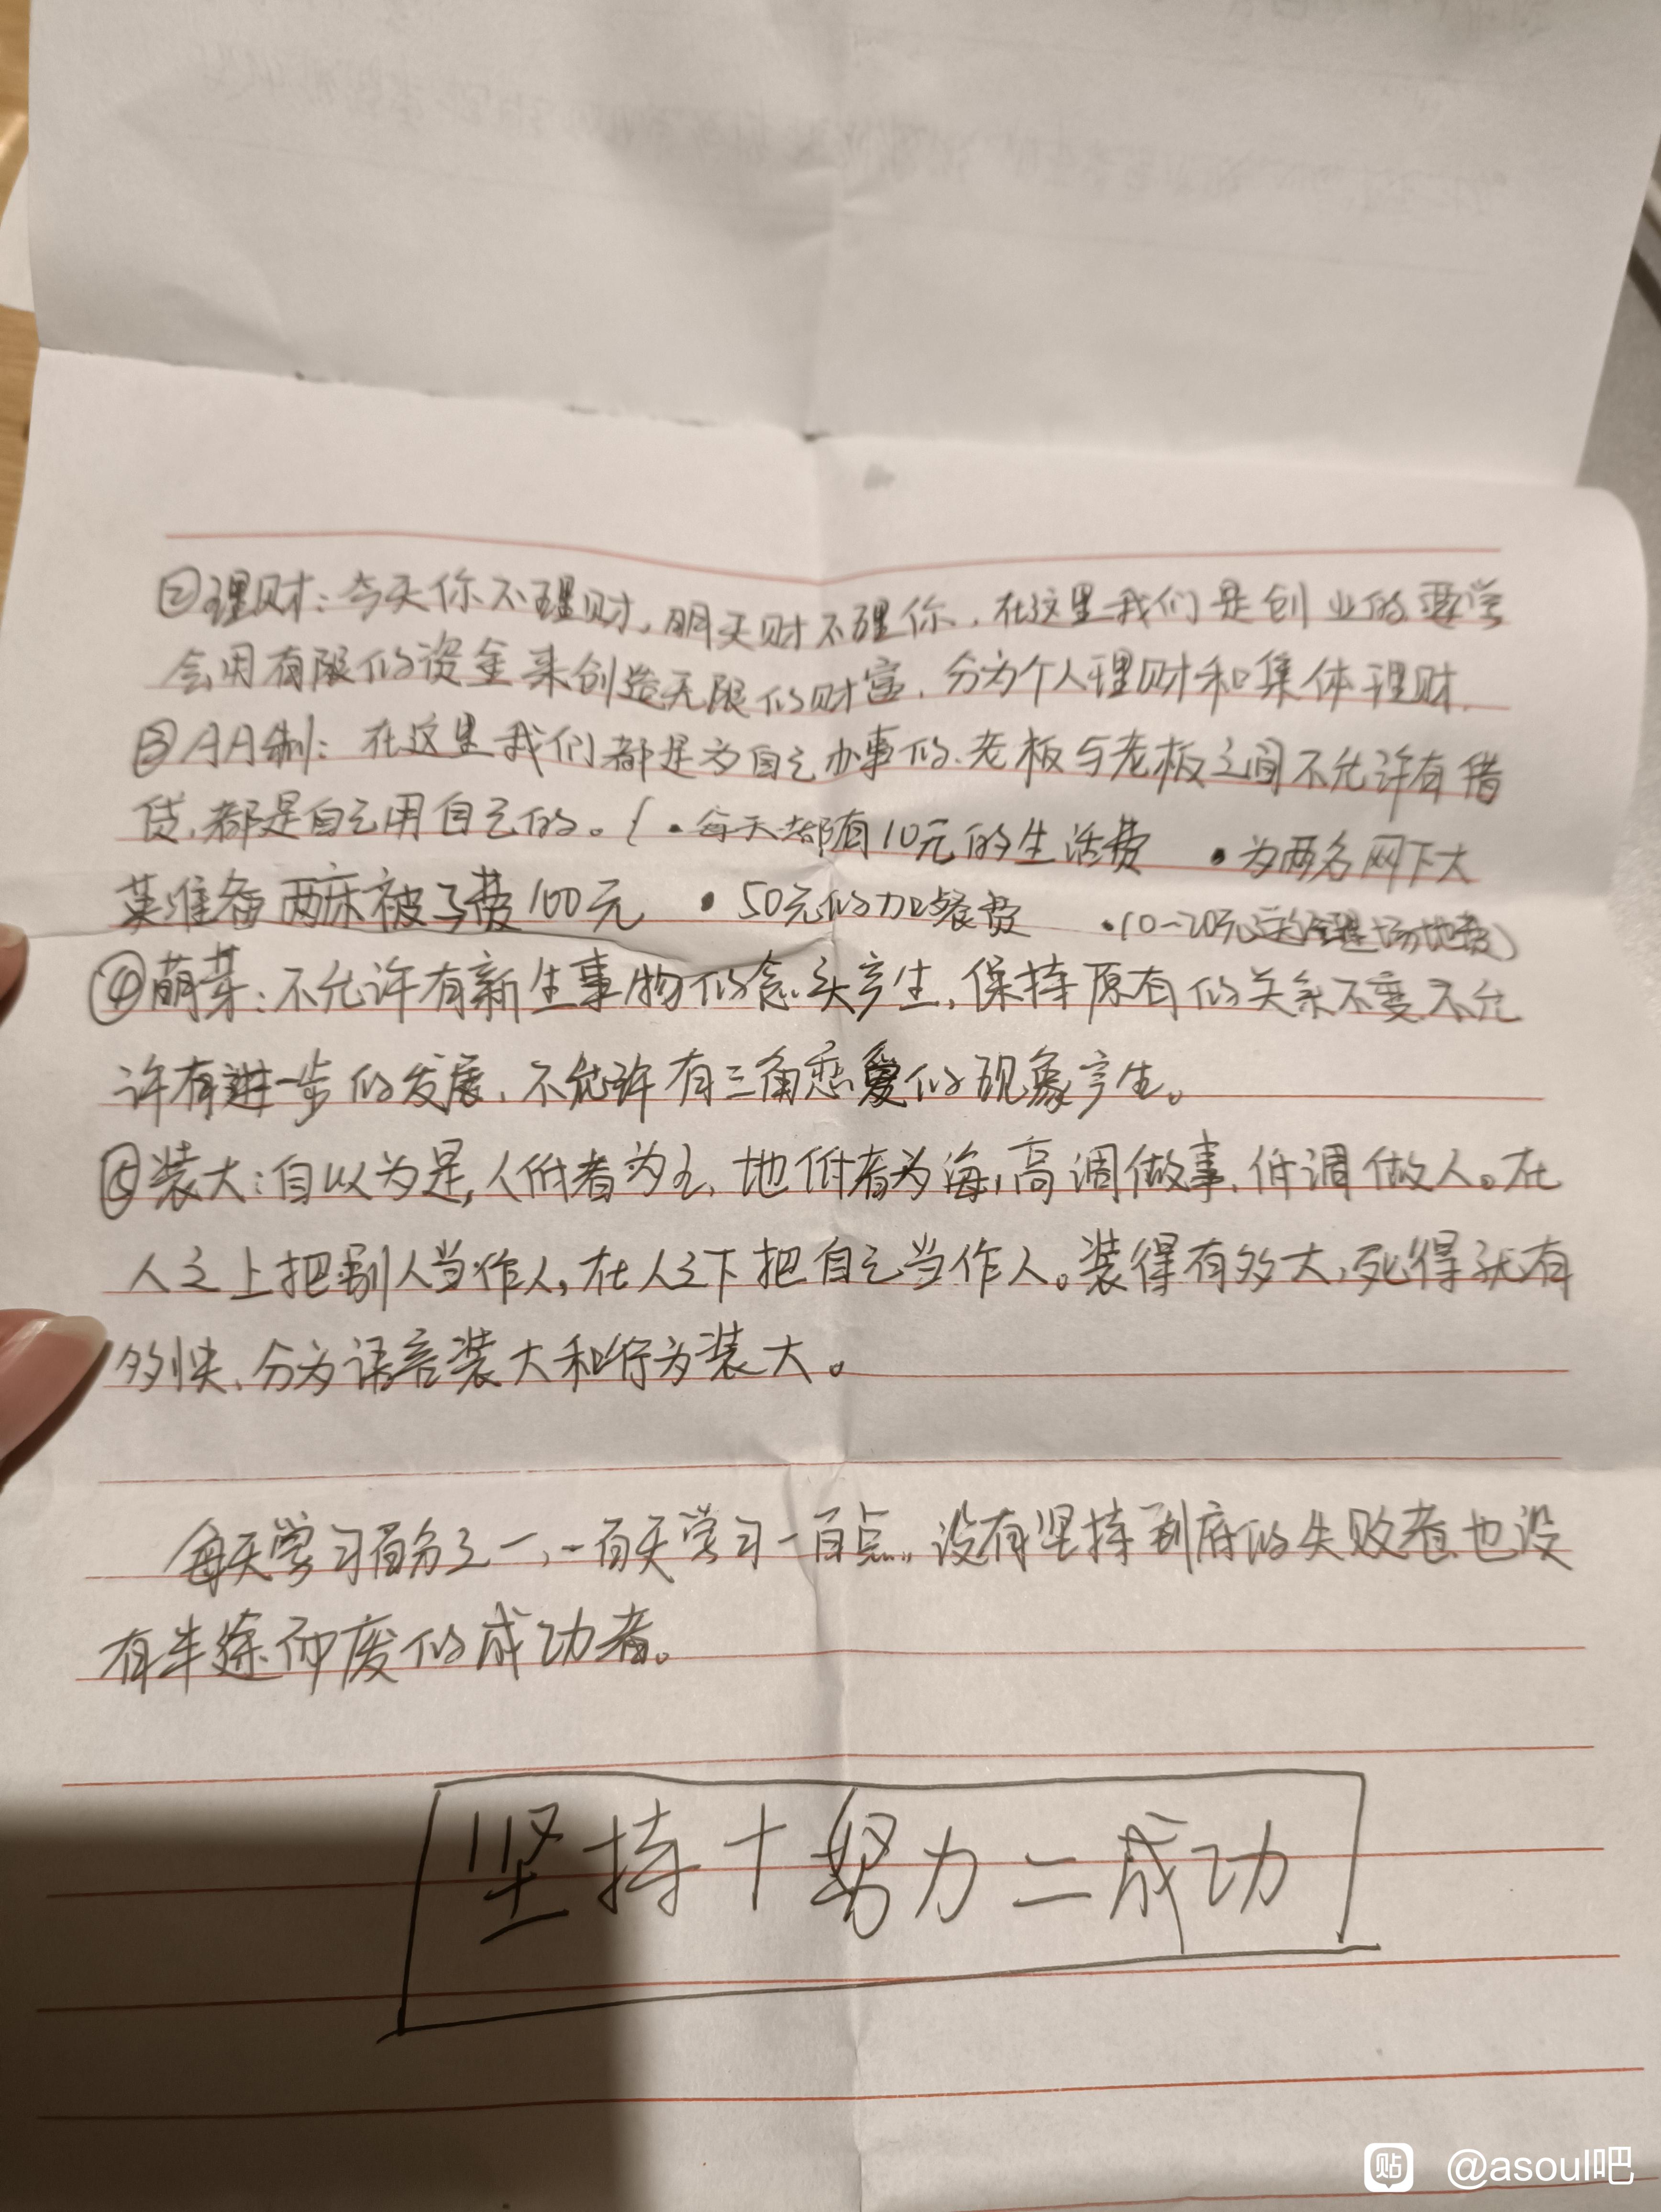 ②理财：今天你不理财，明天财不理你，在这里我们是创业的要学
会用有限的资金来创造无限的财富，分为个人理财和集体理财.
③AA制：在这里我们都是为自己办事的、老板与老板之间不允许有借
贷，都是自己用自己的。(·每天都有10元的生活费 ·为两名网下大
英准备两床被子费100元 ·50元的加餐费 ·10-20元 场地费)
④萌芽：不允许有新生事物的念头产生，保持原有的关系不变不允
许有进一步的发展，不允许有三角恋爱的现象产生。
⑤装大：自以为是，人低者为王、地低者为海，高调做事，低调做人。在
人之上把别人当作人，在人之下把自己当作人。装得有多大，死得就有
多快、分为语言装大和行为装大。
每天学习百分之一，一百天学习一百点，没有坚持到府的失败者也没
有半途而废的成功者。
坚持+努力=成功
贴 @asoul吧